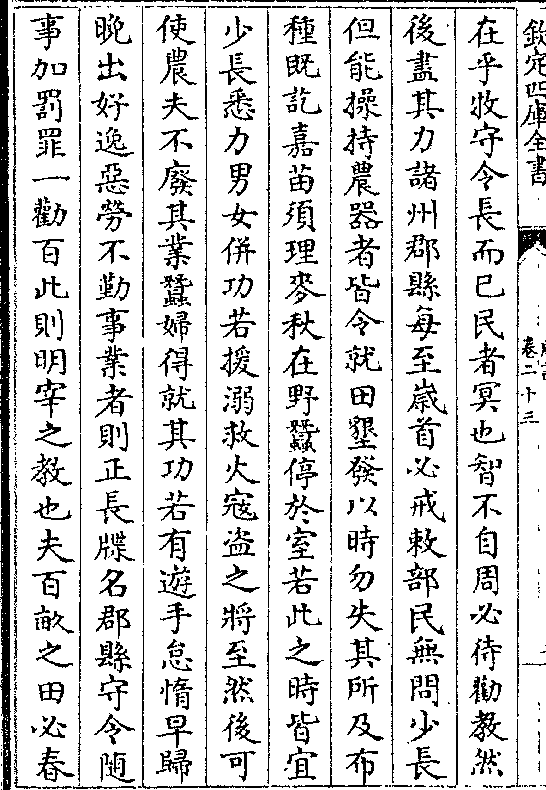 欽定四庫全書
卷二十三
在乎牧守令長而已民者冥也智不自周必待勸教然
後盡其力諸州郡縣每至嵗首必戒敕部民無問少長
但能操持農器者皆令就田墾發以時勿失其所及布
種既訖嘉苗須理麥秋在野蠶停於室若此之時皆宜
少長悉力男女併功若援溺救火寇盗之將至然後可
使農夫不廢其業蠶婦得就其功若有遊手怠惰早歸
晩出好逸惡勞不勤事業者則正長牒名郡縣守令随
事加罰罪一勸百此則明宰之教也夫百畝之田必春